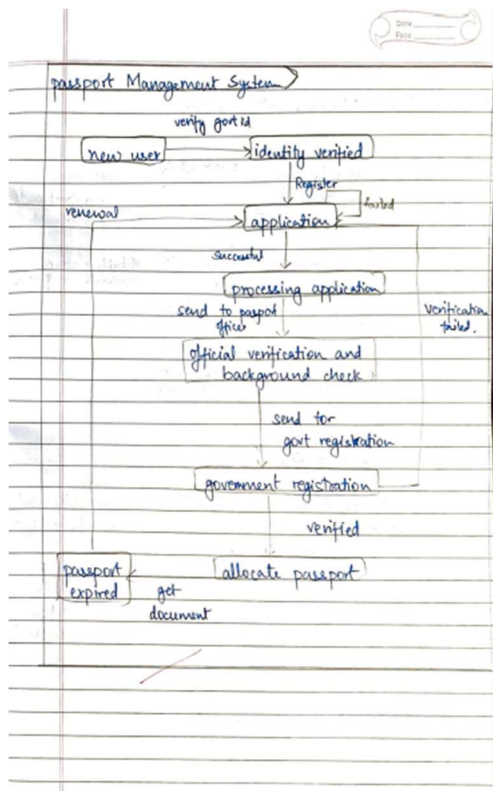 Date
Page
passport Management System
verify govt id
new user
identity verified
Register
failed
renewal
application
successful
processing application
send to passport
office
verification
failed.
official verification and
background check
send for
govt registration
government registration
verified
passport
expired
allocate passport
get
document